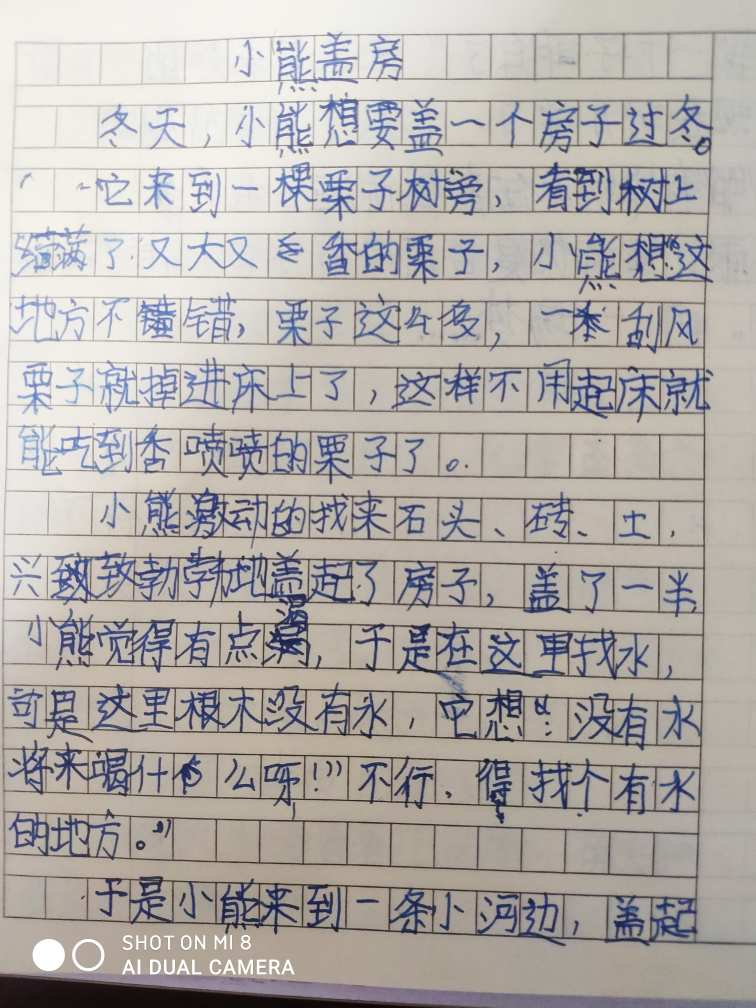 小熊盖房
冬天，小熊想要盖一个房子过冬。
它来到一棵栗子树旁，看到树上
满了又大又香的栗子，小熊想这
地方不错，栗子这么多，一刮风
栗子就掉进床上了，这样不用起床就
能吃到香喷喷的栗子了。
小熊激动的找来石头、砖、土，
兴致致勃勃地盖起了房子，盖了一半
小熊觉得有点渴，于是在这里找水，
可是这里根木没有水，它想“：没有水
将来喝什么呀！”不行、得找个有水
的地方。”
于是小熊来到一条小河边，盖起
SHOT ON MI 8
AI DUAL CAMERA